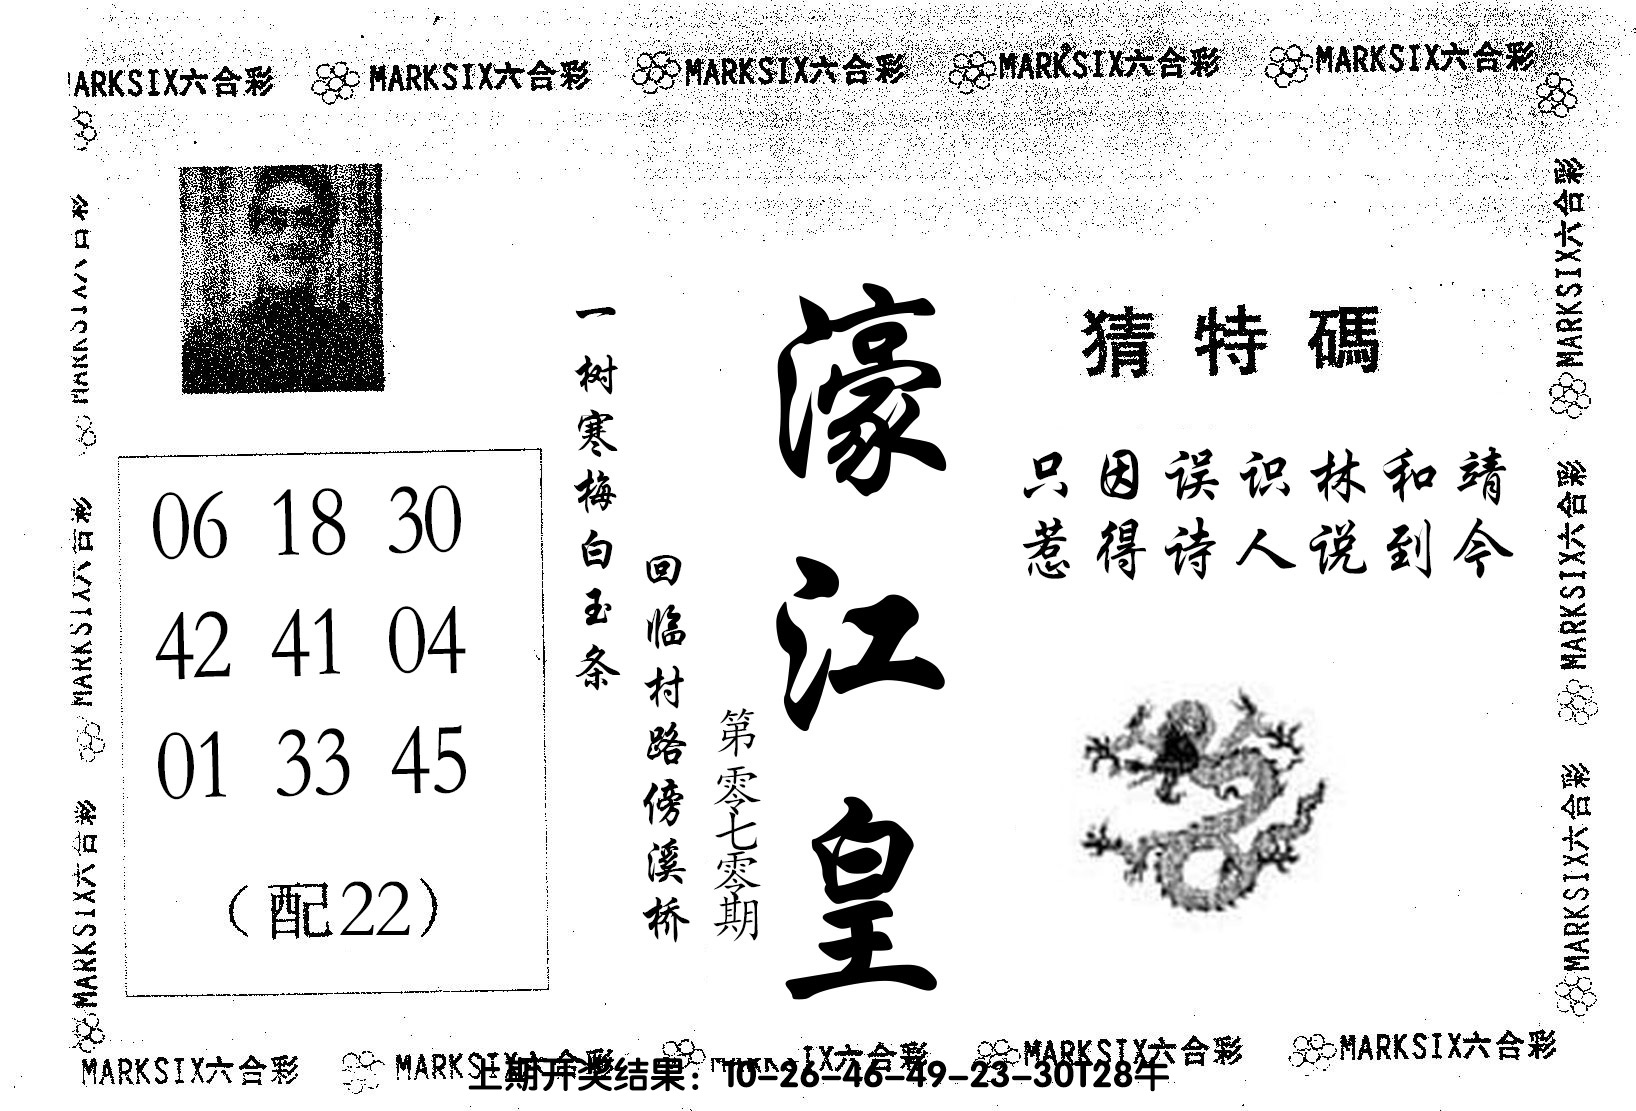 MARKSIX六合彩 MARKSIX六合彩 MARKSIX六合彩 MARKSIX六合彩 MARKSIX六合彩
猜特碼
只因误识林和靖
惹得诗人说到今
濠江皇
第零七零期
一树寒梅白玉条
回临村路傍溪桥
06 18 30
42 41 04
01 33 45
（配22）
MARKSIX六合彩
MARKSIX六合彩
MARKSIX六合彩
MARKSIX六合彩
MARKSIX六合彩
MARKSIX六合彩
MARKSIX六合彩 MARKSIX六合彩 MARKSIX六合彩 MARKSIX六合彩 MARKSIX六合彩
上期开奖结果：10-26-46-49-23-30T28牛